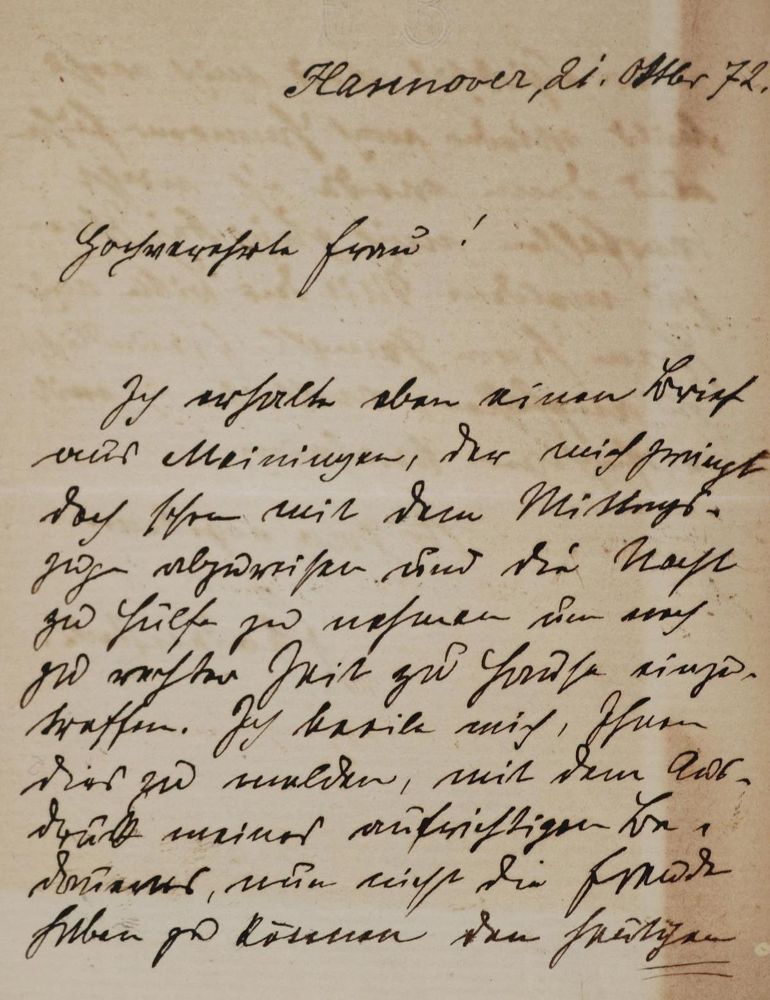 Hannover, 21. Oktbr 72.
Hochverehrte Frau!
Ich erhalte eben einen Brief
aus Meiningen, der mich zwingt
doch schon mit dem Mittags-
zuge abzureisen und die Nacht
zu Hülfe zu nehmen um noch
zu rechter Zeit zu Hause einzu-
treffen. Ich beeile mich, Ihnen
dies zu melden, mit dem Aus-
druck meines aufrichtigen Be-
dauerns, nun nicht die Freude
haben zu können den heutigen